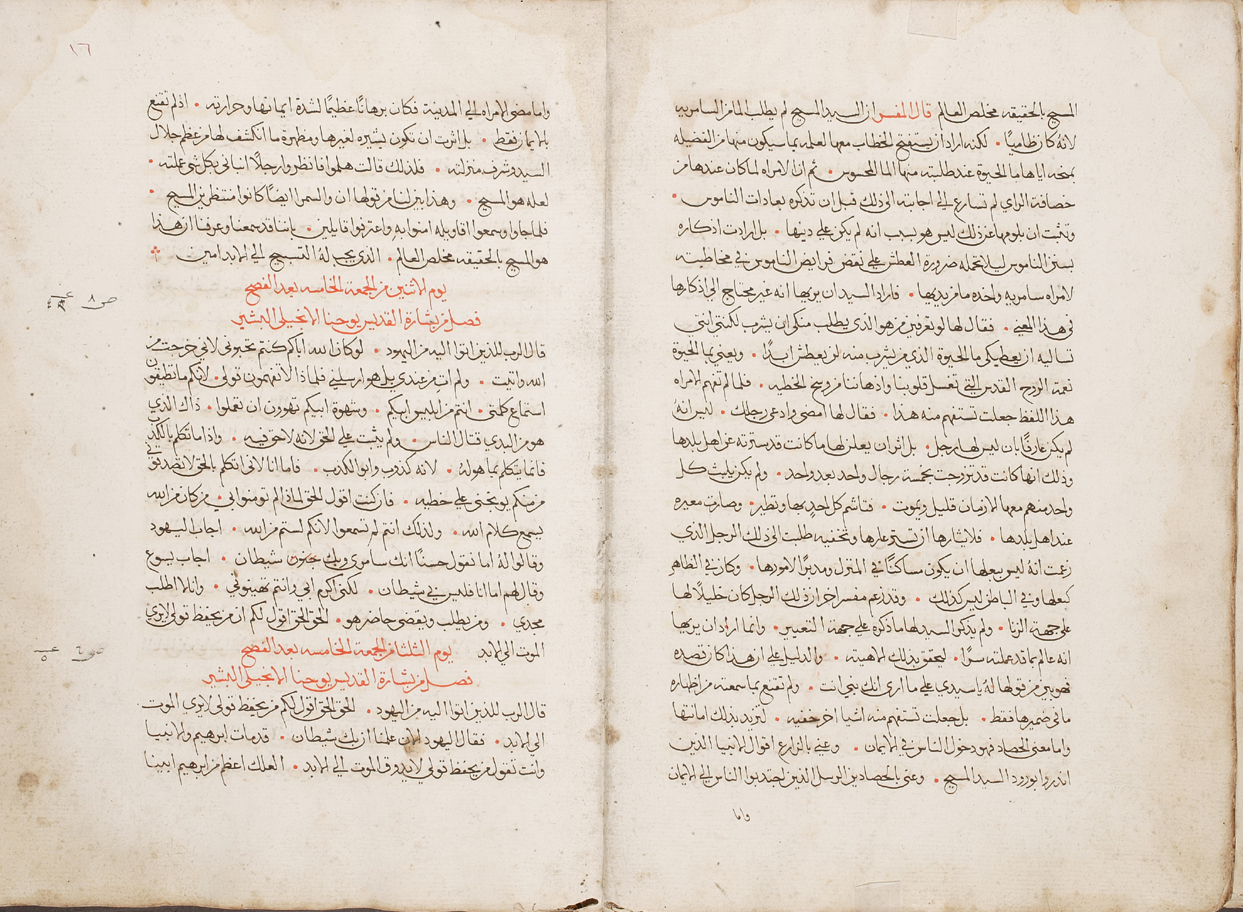 المسيح بالحقيقه مخلص العالم قال المفسر ان السيد المسيح لم يطلب الما من السامريه
لانه كان ظاميًا • لكنه اراد ان يستفتح الخطاب معها لعلمه بما سيكون منها من الفضيله
بمنحه اياها ما الحيوة عند طلبته منها الما المحسوس • ثم ان الامراه لما كان عندها من
حصافة الراي لم تسارع الي اجابته الي ذلك قبل ان تذكره بعادات الناموس •
وتثبت ان بلومها عن ذلك ليس هو بسبب انه لم يكن علي دينها • بل ارادت اذكاره
بسنن الناموس ليلا تحمله ضرورة العطش علي نقض فرايض الناموس في مخاطبته
لامراه سامريه واخذه ما من يديها • فاراد السيد ان يريها انه غير محتاج الي اذكارها
في هذا المعني • فقال لها لو تعرفين من هو الذي يطلب منكي ان يشرب لكنتي انتي
تساليه ان يعطيكي ما الحيوة الذي من يشرب منه لن يعطش ابدًا • ويعني بما الحيوة
نعمة الروح القدس التي تغسل قلوبنا واذهاننا من وسخ الخطيه • فلما لم تفهم الامراه
هذا اللفظ جعلت تستفهم منه هذا • فقال لها امضي وادعي رجلك • ليس انه
لم يكن عارفًا بان ليس لها رجل • بل اثر ان يعلن لها ما كانت قد سترته عن اهل بلدها
وذلك انها كانت قد تزوجت بخمسة رجال واحد بعد واحد • ولم يكن يلبث كل
واحد منهم معها الا زمان قليل ويموت • فتاشم كل احد بها وتطير • وصارت معيره
عند اهل بلدها • فلايثارها ان تستر عارها وتخفيه طلبت الي ذلك الرجل الذي
زعمت انه ليس بعلها ان يكون مساكنًا في المنزل ومدبرًا لامورها • وكان في الظاهر
كبعلها وفي الباطن ليس كذلك • وقد زعم مفسر اخر ان ذلك الرجل كان خليلًا لها
علي جهة الزنا • ولم يذكر السيد لها ما ذكره علي جهة التعيير • وانما اراد ان يريها
انه عالم بما قد عملته سرًا • ليحقق بذلك الاهيته • والدليل علي ان هذا كان قصده
فهو بين من قولها له يا سيدي علي ما اري انك نبي انت • ولم تقنع بما سمعته من اظهاره
ما في ضميرها فقط • بل جعلت تستفهم منه اشيا اخر خفيه • لتزيد بذلك امانتها
واما معني الحصاد فهو دخول الناس في الايمان • وعني بالزارع اقوال الانبيا الذين
انذروا بورود السيد المسيح • وعني بالحصادين الرسل الذين اجتذبوا الناس الي الايمان
واما
١٦
واما مضي الامراه الي المدينة فكان برهانًا عظيمًا لشدة ايمانها وحرارته • اذ لم تقنع
بالايمان فقط • بل اثرت ان تكون بشيره لغيرها ومظهرة ما انكشف لها من عظم جلال
السيد وشرف منزلته • فلذلك قالت هلموا فانظروا رجلًا انباني بكل شي عملته •
لعله هو المسيح • وهذا يبين لنا من قولها ان والسمرا ايضًا كانوا منتظرين المسيح •
فلما جاوا وسمعوا اقاويله امنوا به واعترفوا قايلين • باننا قد سمعنا وعرفنا ان هذا
هو المسيح بالحقيقه مخلص العالم • الذي يجب له التسبيح الي الابد امين
يوم الاثنين من الجمعة الخامسه بعد الفصح
فصل من بشارة القديس يوحنا الانجيلي البشير
ص ٨ عـ
قال الرب للذين اتوا اليه من اليهود • لو كان الله اباكم كنتم تحبوني لاني خرجت من
الله واتيت • ولم ات من عندي بل هو ارسلني فلماذا لا تفهمون قولي • لانكم ما تطيقون
استماع كلمتي • انتم من ابليس ابيكم • وشهوة ابيكم تهوون ان تعملوا • ذاك الذي
هو من البدي قتال الناس • ولم يثبت علي الحق لانه لا حق فيه • واذا ما تكلم بالكذب
فانما يتكلم بما هو له • لانه كذوب وابو الكذب • فاما انا لاني اتكلم بالحق لا تصدقوني
من منكم يوبخني علي خطيه • فان كنت اقول الحق لماذا لم تومنوا بي • من كان من الله
يسمع كلام الله • ولذلك انتم لم تسمعوا لانكم لستم من الله • اجاب اليهود
وقالوا له اما نقول حسنًا انك سامري وبك جنون شيطان • اجاب يسوع
وقال لهم اما انا فليس في شيطان • لكني اكرم ابي وانتم تهينوني • وانا لا اطلب
مجدي • ومن يطلب ويقضي حاضر هو • الحق الحق اقول لكم ان من يحفظ قولي لا يري
الموت الي الابد يوم الثلثا من الجمعة الخامسه بعد الفصح
ص ٦ عـ
فصل من بشارة القديس يوحنا الانجيلي البشير
قال الرب للذين اتوا اليه من اليهود • الحق الحق اقول لكم من يحفظ قولي لا يري الموت
الي الابد • فقال اليهود الان علمنا ان بك شيطان • قد مات ابرهيم والانبيا
وانت تقول من يحفظ قولي لا يذوق الموت الي الابد • العلك اعظم من ابرهيم ابينا